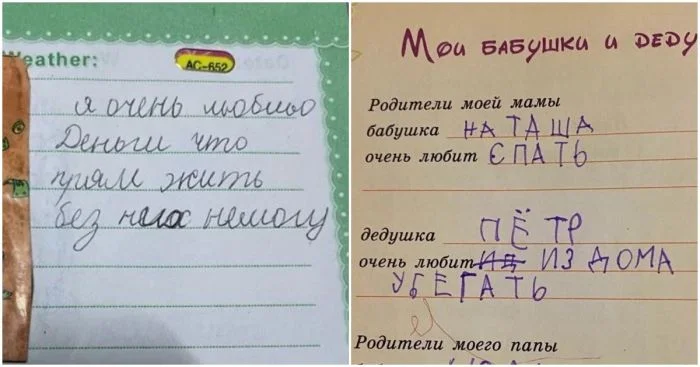 Weather:
AC-652
я очень люблю
Деньги что
прям жить
без них немогу
Мои бабушки и деду
Родители моей мамы
бабушка НАТАША
очень любит ЄПАТЬ
дедушка ПЁТР
очень любит ИЗ ДОМА
УБЕГАТЬ
Родители моего папы